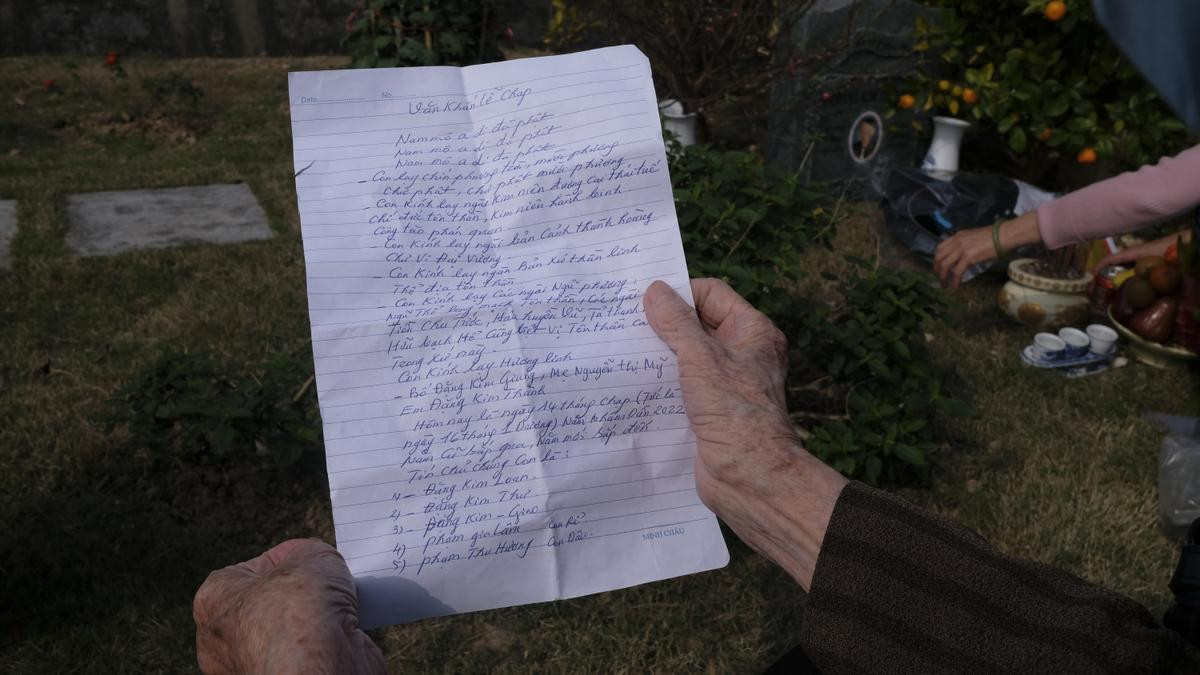 Date No.
Văn Khấn lễ Chạp
Nam mô a di đà phật
Nam mô a di đà phật
Nam mô a di đà phật
- Con lạy chín phương trời, mười phương
Chư phật, chư phật mười phương
- Con Kính lạy ngài Kim niên đương Cai Thái tuế
Chí đức tôn thần, Kim niên hành binh
Công tào phán quan.
- Con Kính lạy ngài bản Cảnh thành hoàng
Chư Vị Đại Vương.
- Con Kính lạy ngài Bản Xứ thần linh
Thổ địa tôn thần
- Con Kính lạy Các ngài Ngũ phương,
Ngũ Thổ long mạch Tôn thần, Các ngài
Tiền Chu Tước, Hậu huyền Vũ, Tả thanh
Hữu bạch Hổ Cùng liệt Vị Tôn thần Ca
Trong xứ này.
Con Kính lạy Hương linh
- Bố Đặng Kim Giang, Mẹ Nguyễn thị Mỹ
Em Đặng Kim Thành
Hôm nay là ngày 14 tháng Chạp (Tức là
ngày 16 tháng 1 Dương) Năm Nhâm Dần 2022
Năm Cũ Sắp qua, Năm mới Sắp đến.
Tín Chủ Chúng Con là :
1 - Đặng Kim Loan.
2) - Đặng Kim Thư
3) - Đặng Kim -
4) phạm gia Lâm Con Rể
5) phạm Thu Hương Con Dâu.
MINH CHÂU